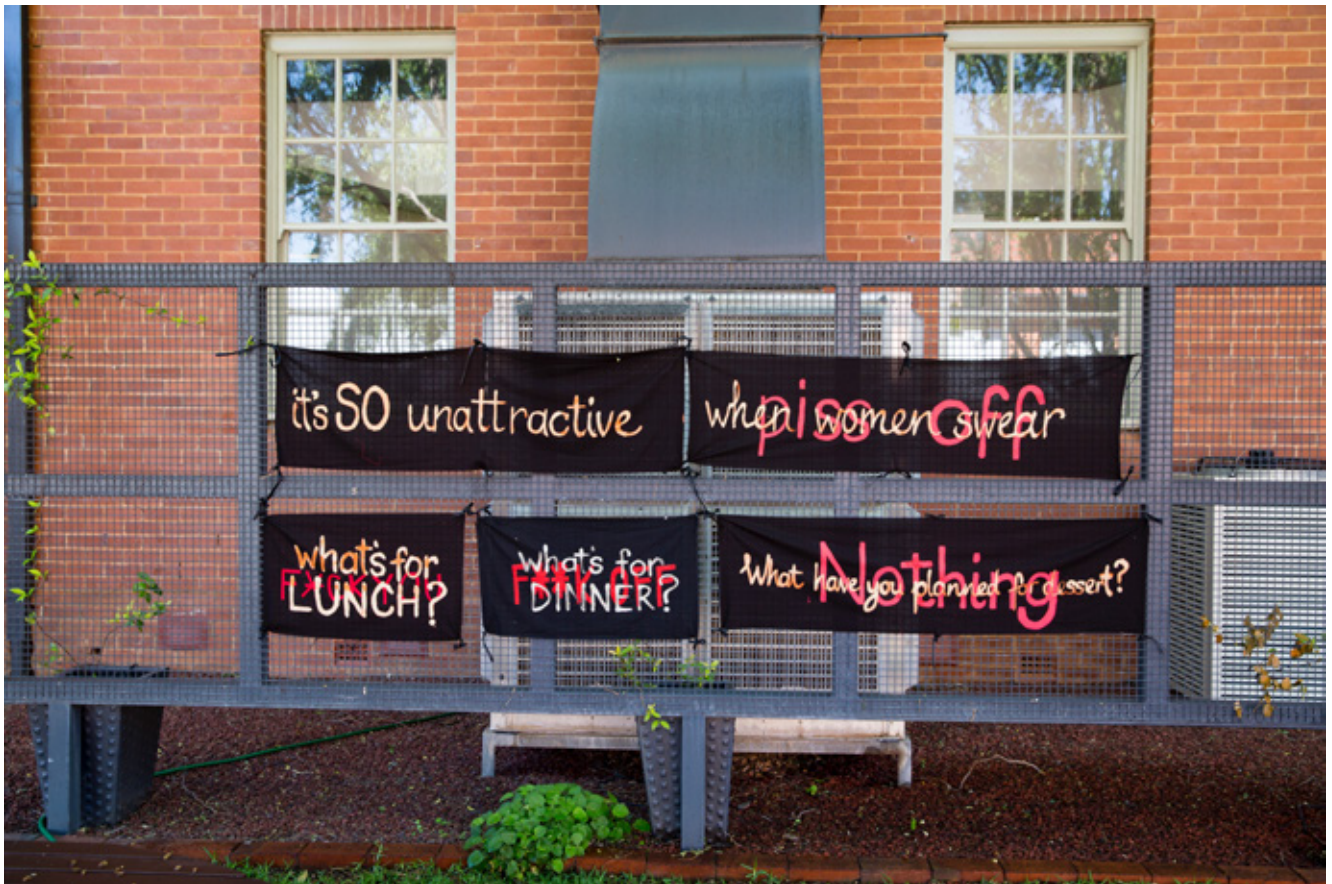 it's SO unattractive
when women swear
piss off
what's for
F*CK YOU
LUNCH?
what's for
F**K OFF
DINNER?
What have you planned for dessert?
Nothing